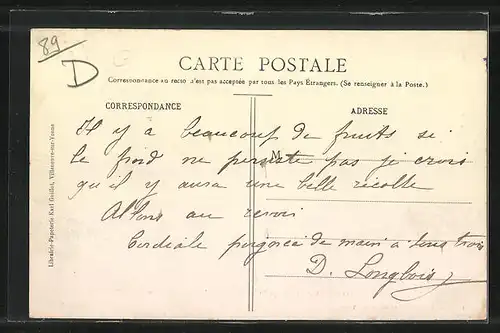 89
D
CARTE POSTALE
Correspondance au recto n'est pas acceptée par tous les Pays Étrangers. (Se renseigner à la Poste.)
CORRESPONDANCE
ADRESSE
M
Il y a beaucoup de fruits si
le froid ne persiste pas je crois
qu'il y aura une belle récolte
Allons au revoir
Cordiale poignée de main a tous trois
D. Longbois
Librairie-Papeterie Karl Guillot, Villeneuve-sur-Yonne